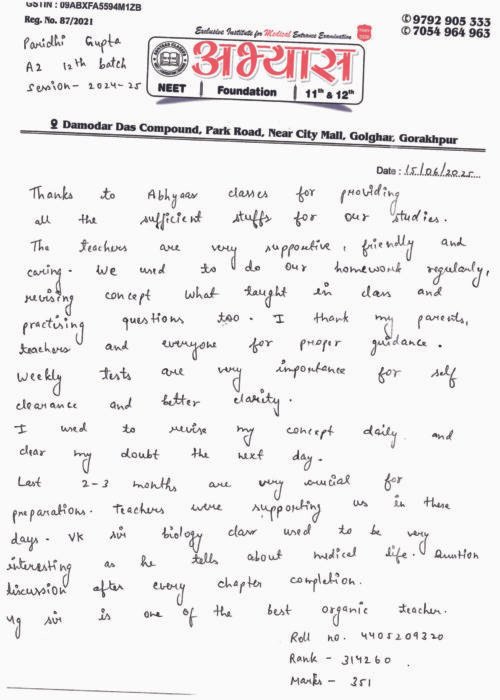 GSTIN : 09ABXFA5594M1ZB
Reg. No. 87/2021
Paridhi Gupta
A2 12th batch
Session- 2024-25
Exclusive Institute for Medical Entrance Examination
अभ्यास
NEET | Foundation | 11th & 12th
✆ 9792 905 333
✆ 7054 964 963
Damodar Das Compound, Park Road, Near City Mall, Golghar, Gorakhpur
Date : 15/06/2025
Thanks to Abhyaas classes for providing
all the sufficient stuffs for our studies.
The teachers are very supportive, friendly and
caring. We used to do our homework regularly,
revising concept what taught in class and
practising questions too. I thank my parents,
teachers and everyone for proper guidance.
Weekly tests are very importance for self
clearance and better clarity.
I used to revise my concept daily and
clear my doubt the next day.
Last 2-3 months are very crucial for
preparations. Teachers were supporting us in these
days. VK sir biology class used to be very
interesting as he tells about medical life. Question
discussion after every chapter completion.
sir is one of the best organic teacher.
Roll no. 4405209320
Rank - 314260
Marks - 351